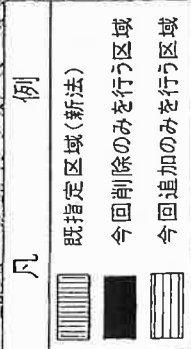 凡　例
既指定区域(新法)
今回削除のみを行う区域
今回追加のみを行う区域